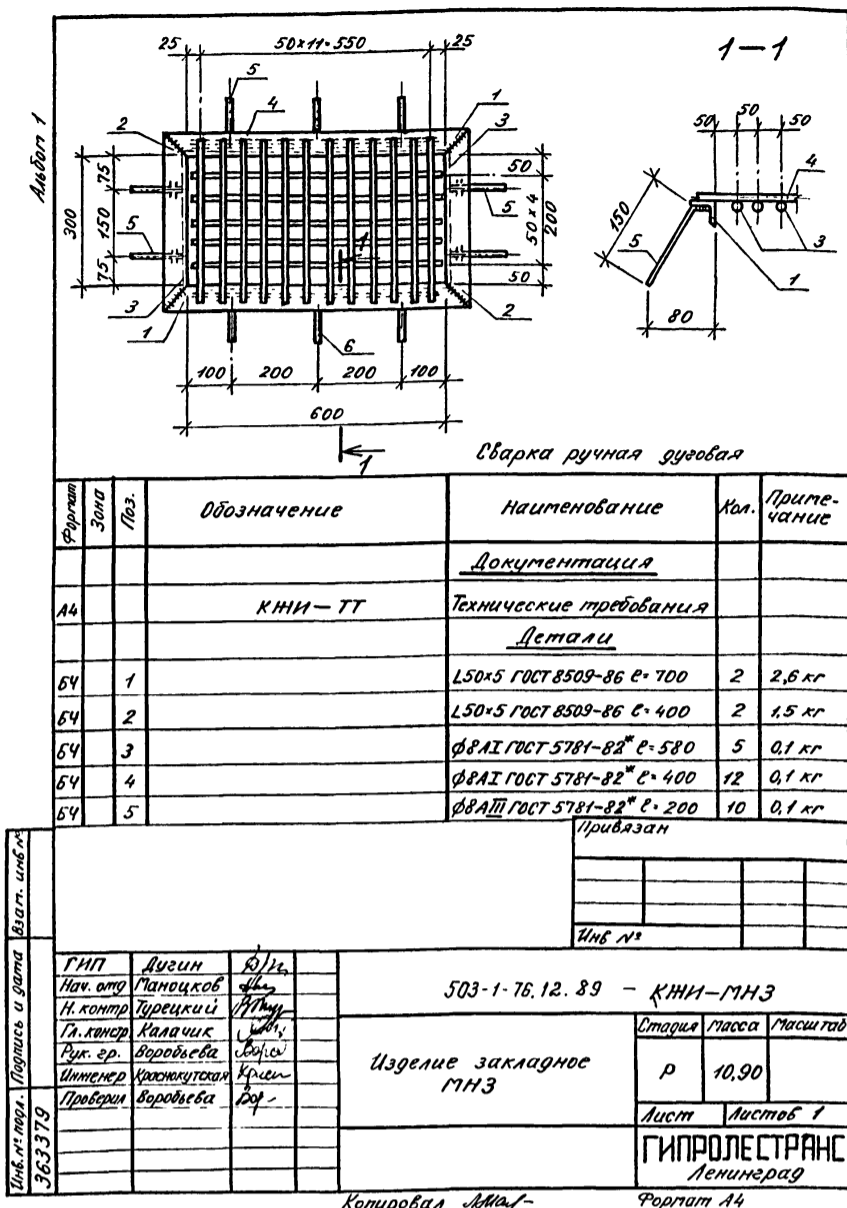 Альбом 1
25 50×11=550 25
1—1
5
4
1
2
3
75
50
300
150
5
5
50×4
200
1
75
50
3
2
1
6
100 200 200 100
600
1
50 50 50
4
150
5
3
1
80
Сварка ручная дуговая
Формат Зона Поз. Обозначение Наименование Кол. Приме-
чание
Документация
А4 КЖИ—ТТ Технические требования
Детали
БЧ 1 L50×5 ГОСТ 8509-86 ℓ=700 2 2,6 кг
БЧ 2 L50×5 ГОСТ 8509-86 ℓ=400 2 1.5 кг
БЧ 3 ϕ8АI ГОСТ 5781-82* ℓ=580 5 0,1 кг
БЧ 4 ϕ8АI ГОСТ 5781-82* ℓ=400 12 0,1 кг
БЧ 5 ϕ8АIII ГОСТ 5781-82* ℓ=200 10 0,1 кг
Привязан
Инв №
Взам. инв №
Подпись и дата
Инв. № подл.
363379
ГИП Дугин
Нач. отд Маноцков
Н. контр Турецкий
Гл. констр. Калачик
Рук. гр. Воробьева
Инженер Краснокутская
Проверил Воробьева
503-1-76.12.89 — КЖИ-МН3
Изделие закладное
МН3
Стадия Масса Масштаб
Р 10,90
Лист Листов 1
ГИПРОЛЕСТРАНС
Ленинград
Копировал
Формат А4